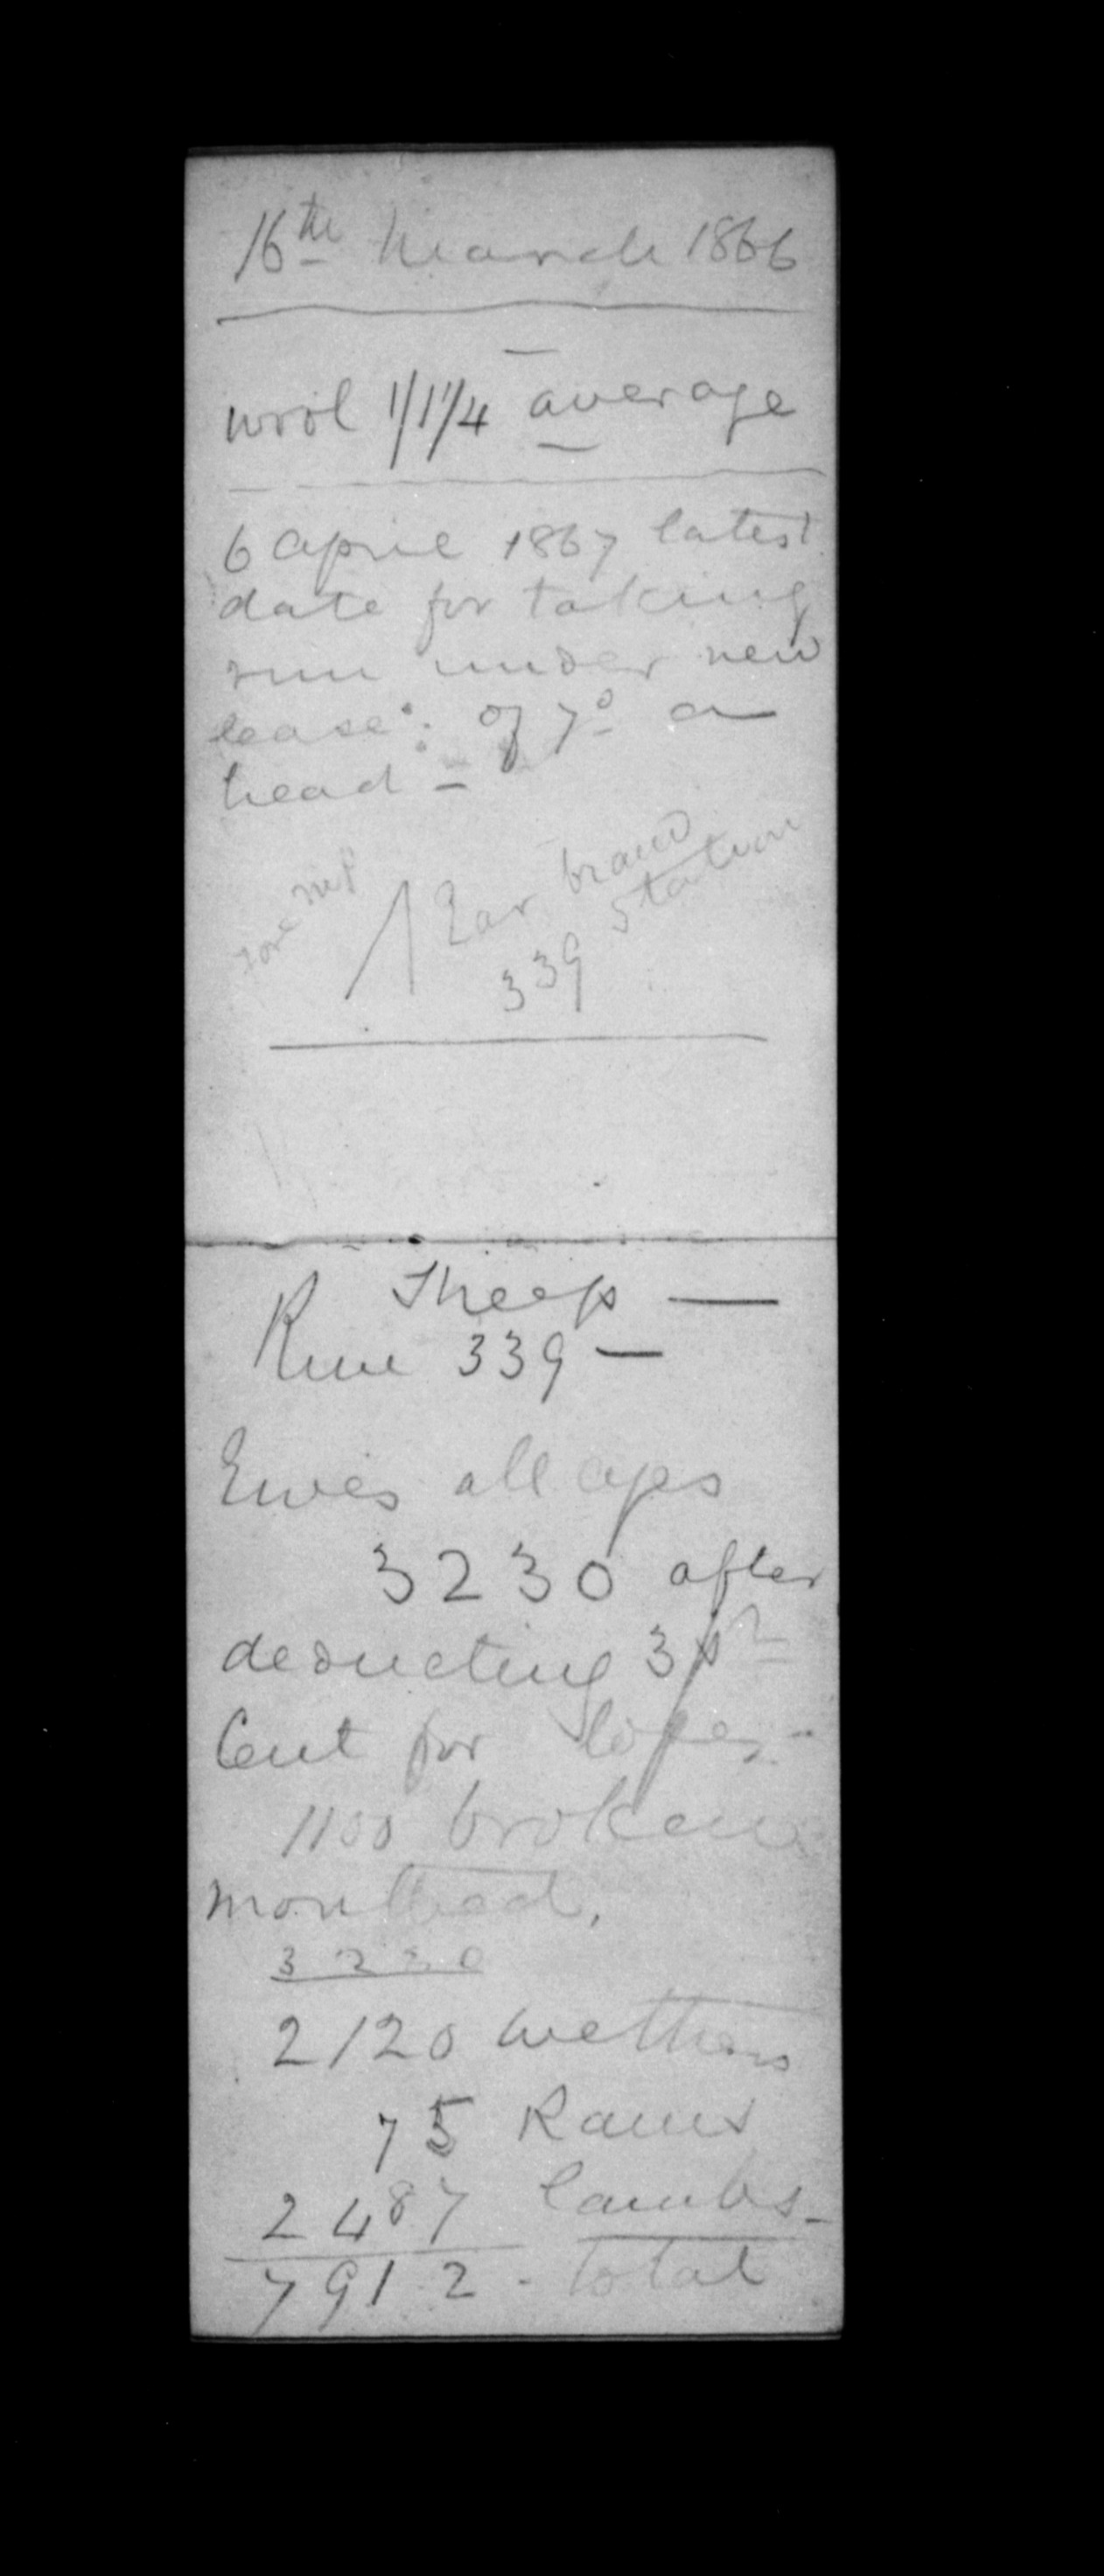 16th March 1866
wool 1/1 1/4 average
6 April 1867 latest
date for taking
run under new
lease: of 7d a
head -
Fore
Ear brand
Station
339
Sheep —
Run 339 —
Ewes all ages
3230 after
deducting 3 pr
Cent for loss -
1100 broken
mouthed.
3230
2120 wethers
75 Rams
2487 lambs -
7912 - total